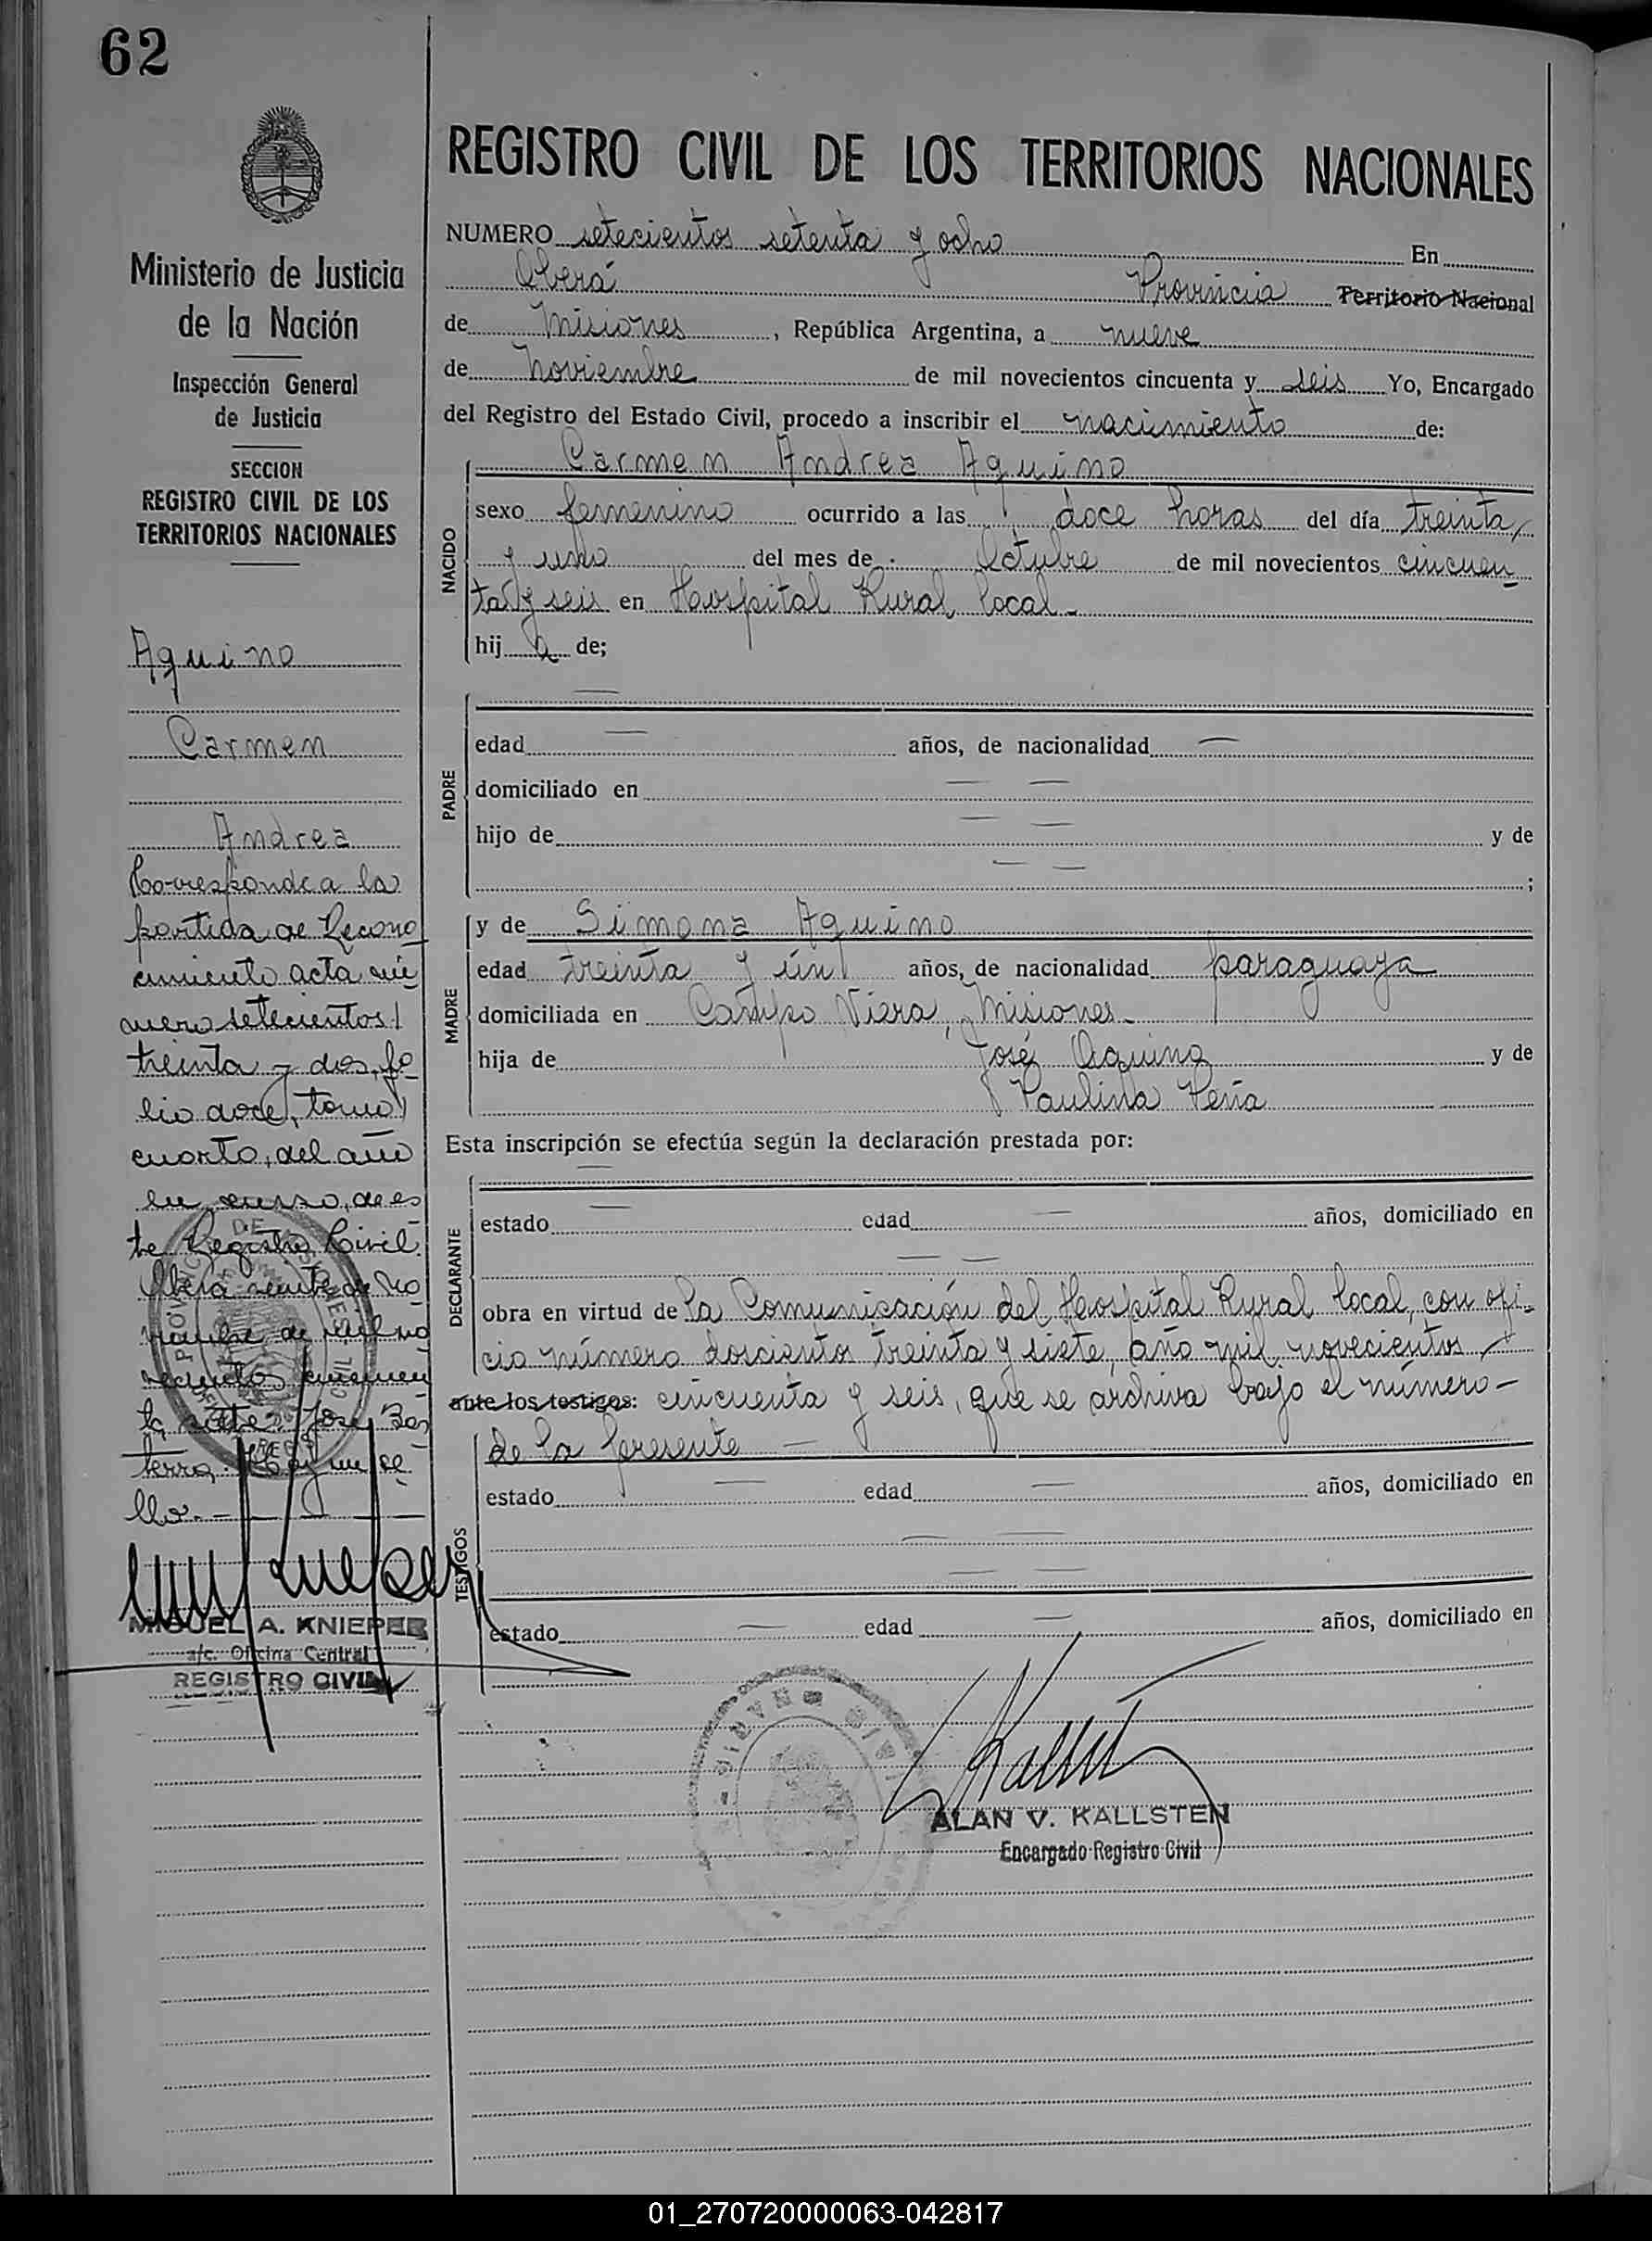 62
Ministerio de Justicia
de la Nación
Inspección General
de Justicia
SECCION
REGISTRO CIVIL DE LOS
TERRITORIOS NACIONALES
Aquino
Carmen
Andrea
Corresponde a la
partida de Recono
cimiento acta nú
mero setecientos
treinta y dos, fo
lio doce, tomo
cuarto, del año
en curso, de es
te Registro Civil.
Oberá veinte de no
viembre de mil no
vecientos cincuen
ta y siete. José Bas
terra. Hay un se
llo.-
MIGUEL A. KNIEPER
a/c. Oficina Central
REGISTRO CIVIL
REGISTRO CIVIL DE LOS TERRITORIOS NACIONALES
NUMERO setecientos setenta y ocho En
Oberá Provincia Territorio Nacional
de Misiones, República Argentina, a nueve
de Noviembre de mil novecientos cincuenta y seis Yo, Encargado
del Registro del Estado Civil, procedo a inscribir el nacimiento de:
Carmen Andrea Aquino
NACIDO
sexo femenino ocurrido a las doce horas del día treinta
y uno del mes de Octubre de mil novecientos cincuen
ta y seis en Hospital Rural, local-
hij a de;
PADRE
edad — años, de nacionalidad —
domiciliado en — —
hijo de — — y de
— — ;
MADRE
y de Simona Aquino
edad treinta y un años, de nacionalidad paraguaya
domiciliada en Campo Viera, Misiones-
hija de José Aquino y de
Paulina Peña
Esta inscripción se efectúa según la declaración prestada por:
DECLARANTE
estado — edad — años, domiciliado en
— —
obra en virtud de la Comunicación del Hospital Rural local, con ofi-
cio número doscientos treinta y siete, año mil novecientos
ante los testigos: cincuenta y seis, que se archiva bajo el número-
de la presente —
TESTIGOS
estado — edad — años, domiciliado en
— —
— —
estado — edad — años, domiciliado en
ALAN V. KALLSTEN
Encargado Registro Civil
01_270720000063-042817